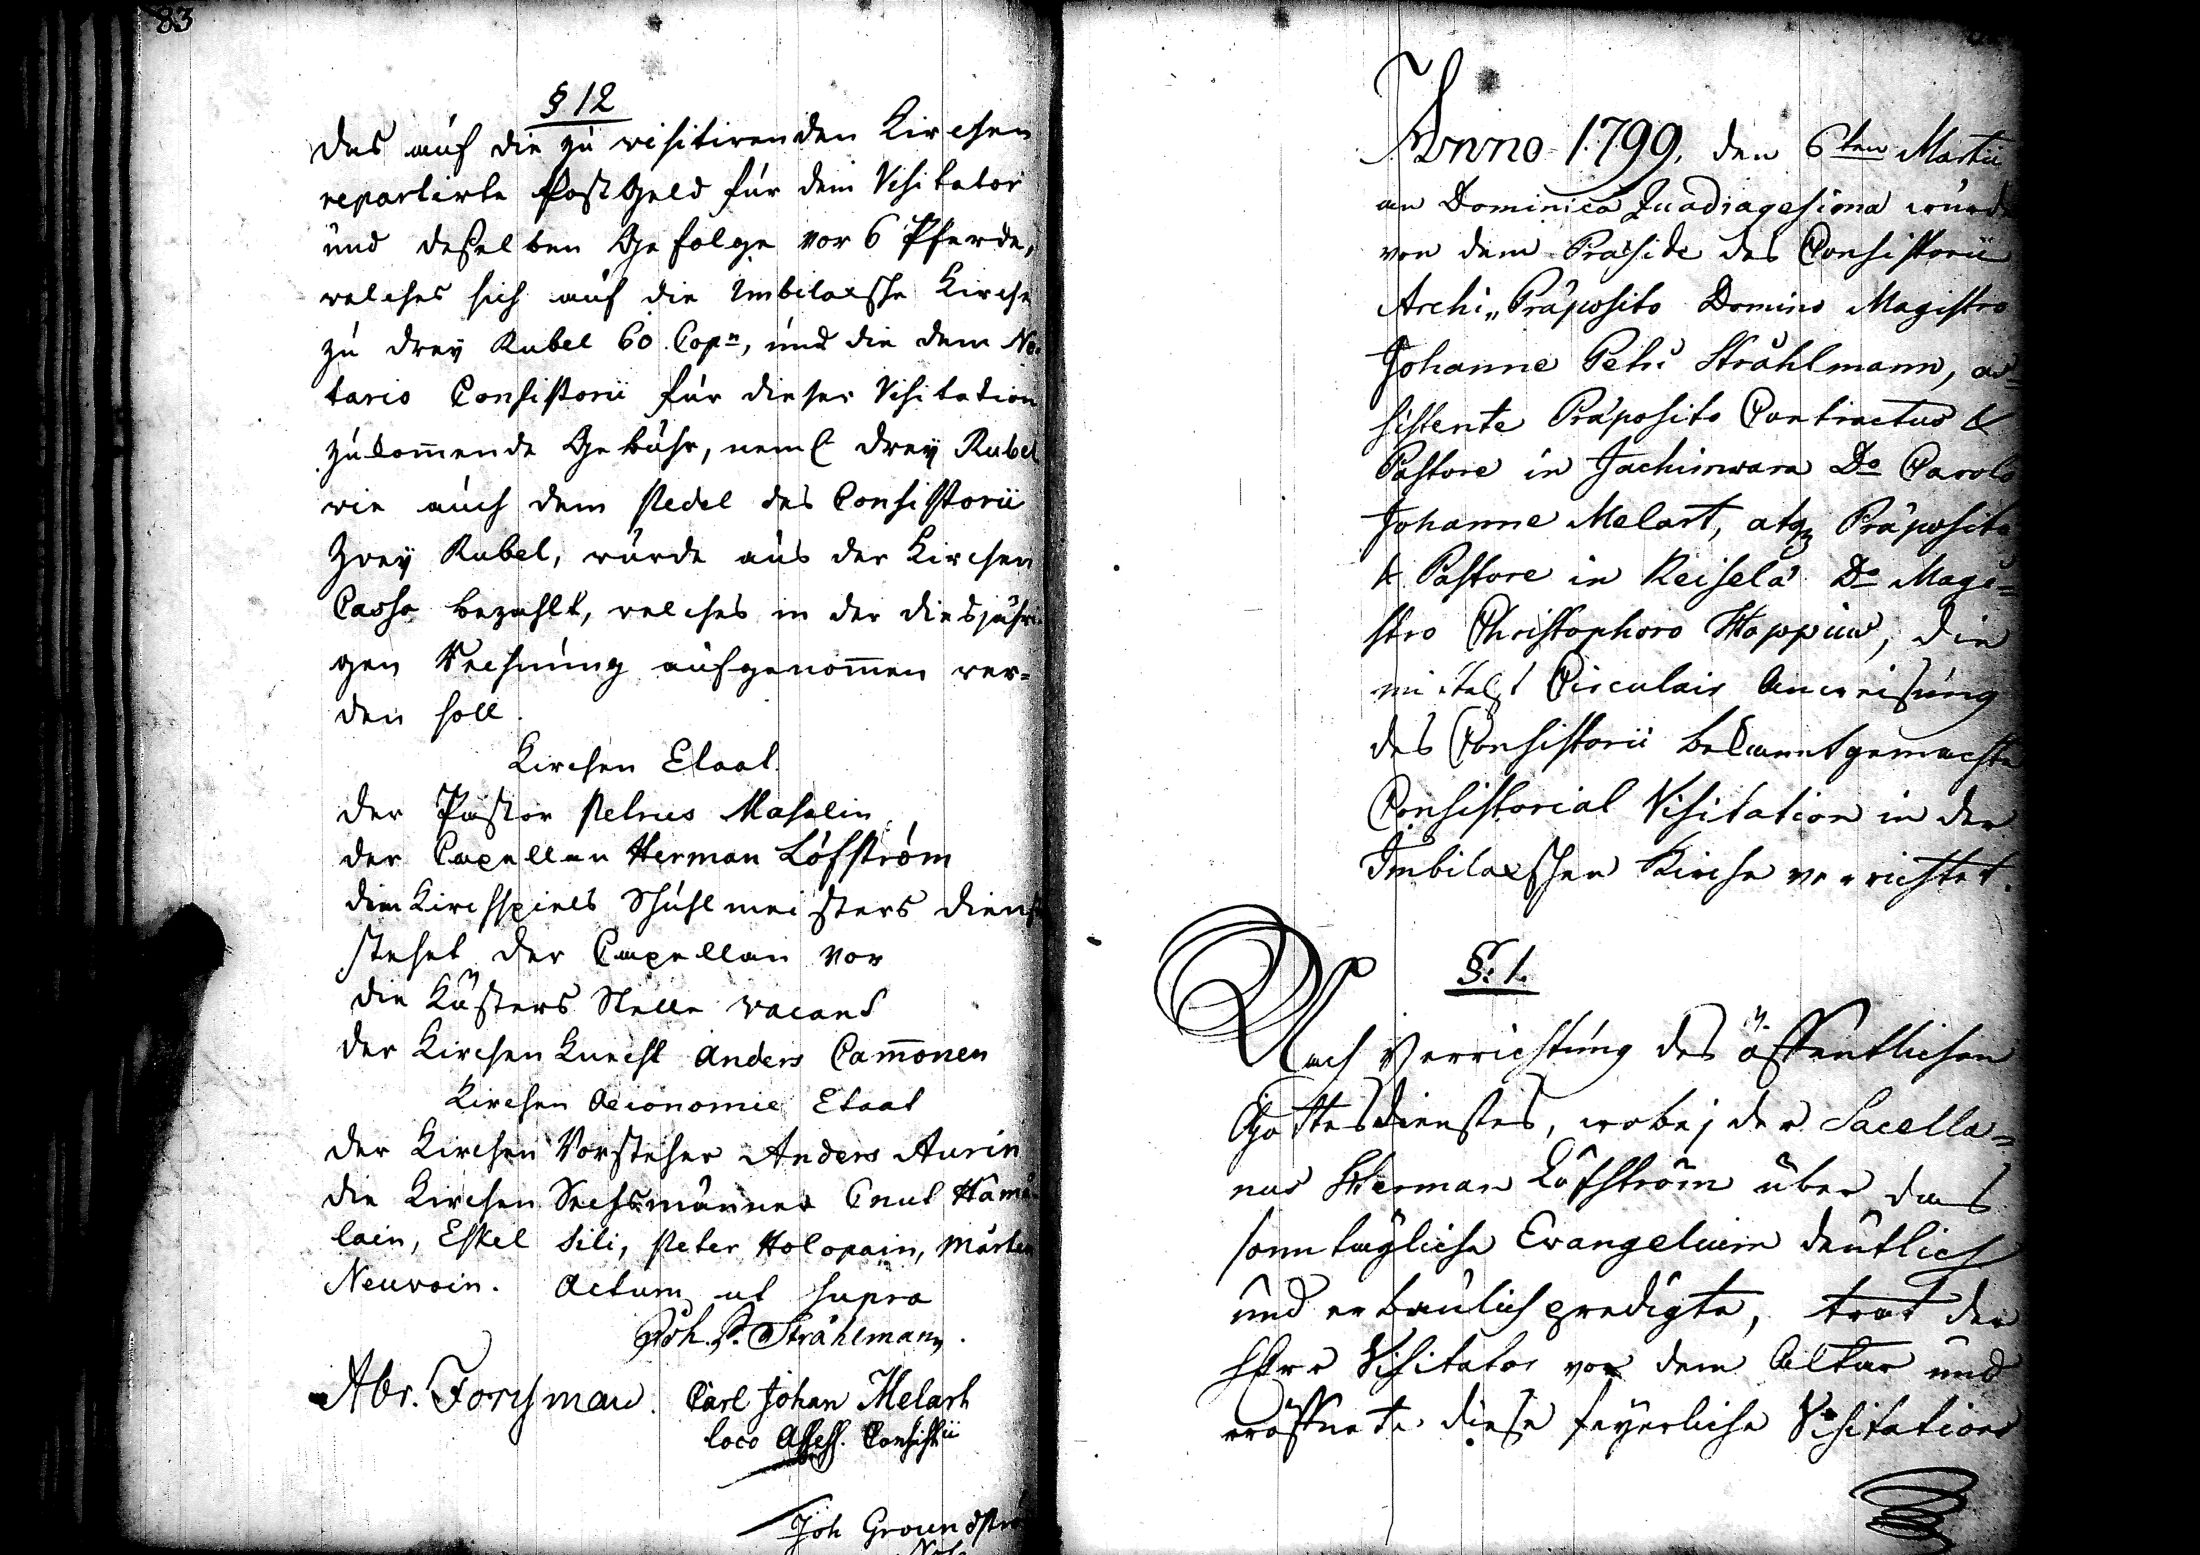 83
§ 12
Das auf die zu visitirenden Kirchen
repartirte Post Geld für dem Visitator
und deßelben Gefolge vor 6 Pferde,
welches sich auf die Imbilaxsche Kirche
zu drey Rubel 60 Copn, und die dem No-
tario Consistorii für dieser Visitation
zukom̄ende Gebühr, neml drey Rubel
wie auch dem Pedel des Consistorii
Zwey Rubel, würde aus der Kirchen
Cassa bezahlt, welches in der diesjähri
gen Rechnung aufgenom̄en wer=
den soll.
Kirchen Etaat.
Der Pastor Petrus Masalin
der Capellan Herman Löfström
dem Kirchspiels Schuhlmeisters Dienst
stehet der Capellan vor
die Küsters Stelle vacant
der Kirchen Knecht Anders Cam̄onen
Kirchen Oeconomie Etaat
der Kirchen Vorsteher Anders Aurin
die Kirchen Sechsmänner Cnut Hämä
lain, Eskel Sili, Peter Holopain, Mårten
Neuvoin. Actum ut supra
Joh. P. Strahlmann.
Abr. Forsman. Carl Johan Melart
loco Assess. Consistii
Joh Groundstro
Not
Anno 1799, den 6ten Martii
an Dominica Quadragesima wurde
von dem Præside des Consistorii
Archi„Præposito Domino Magistro
Johanne Petri Stråhlmann, as=
sistente Præposito Contractus &
Pastore in Jachimvara Do Carolo
Johanne Melart, atq Præposito
& Pastore in Reiselä Do Magi=
stro Christophoro Hoppius, die
mittelst Circulair Anweisung
des Consistorii bekanntgemachte
Consistorial Visitation in der
Imbilaxschen Kirche verrichtet.
§: 1.
Nach Verrichtung des öffentlichen
Gottesdienstes, wobej der Sacella=
nus Herman Löfström über das
sonntägliche Evangelium deutlich
und erbaulich predigte, trat der
Herr Visitator vor dem Altar und
eröffnete diese feyerliche Visitations